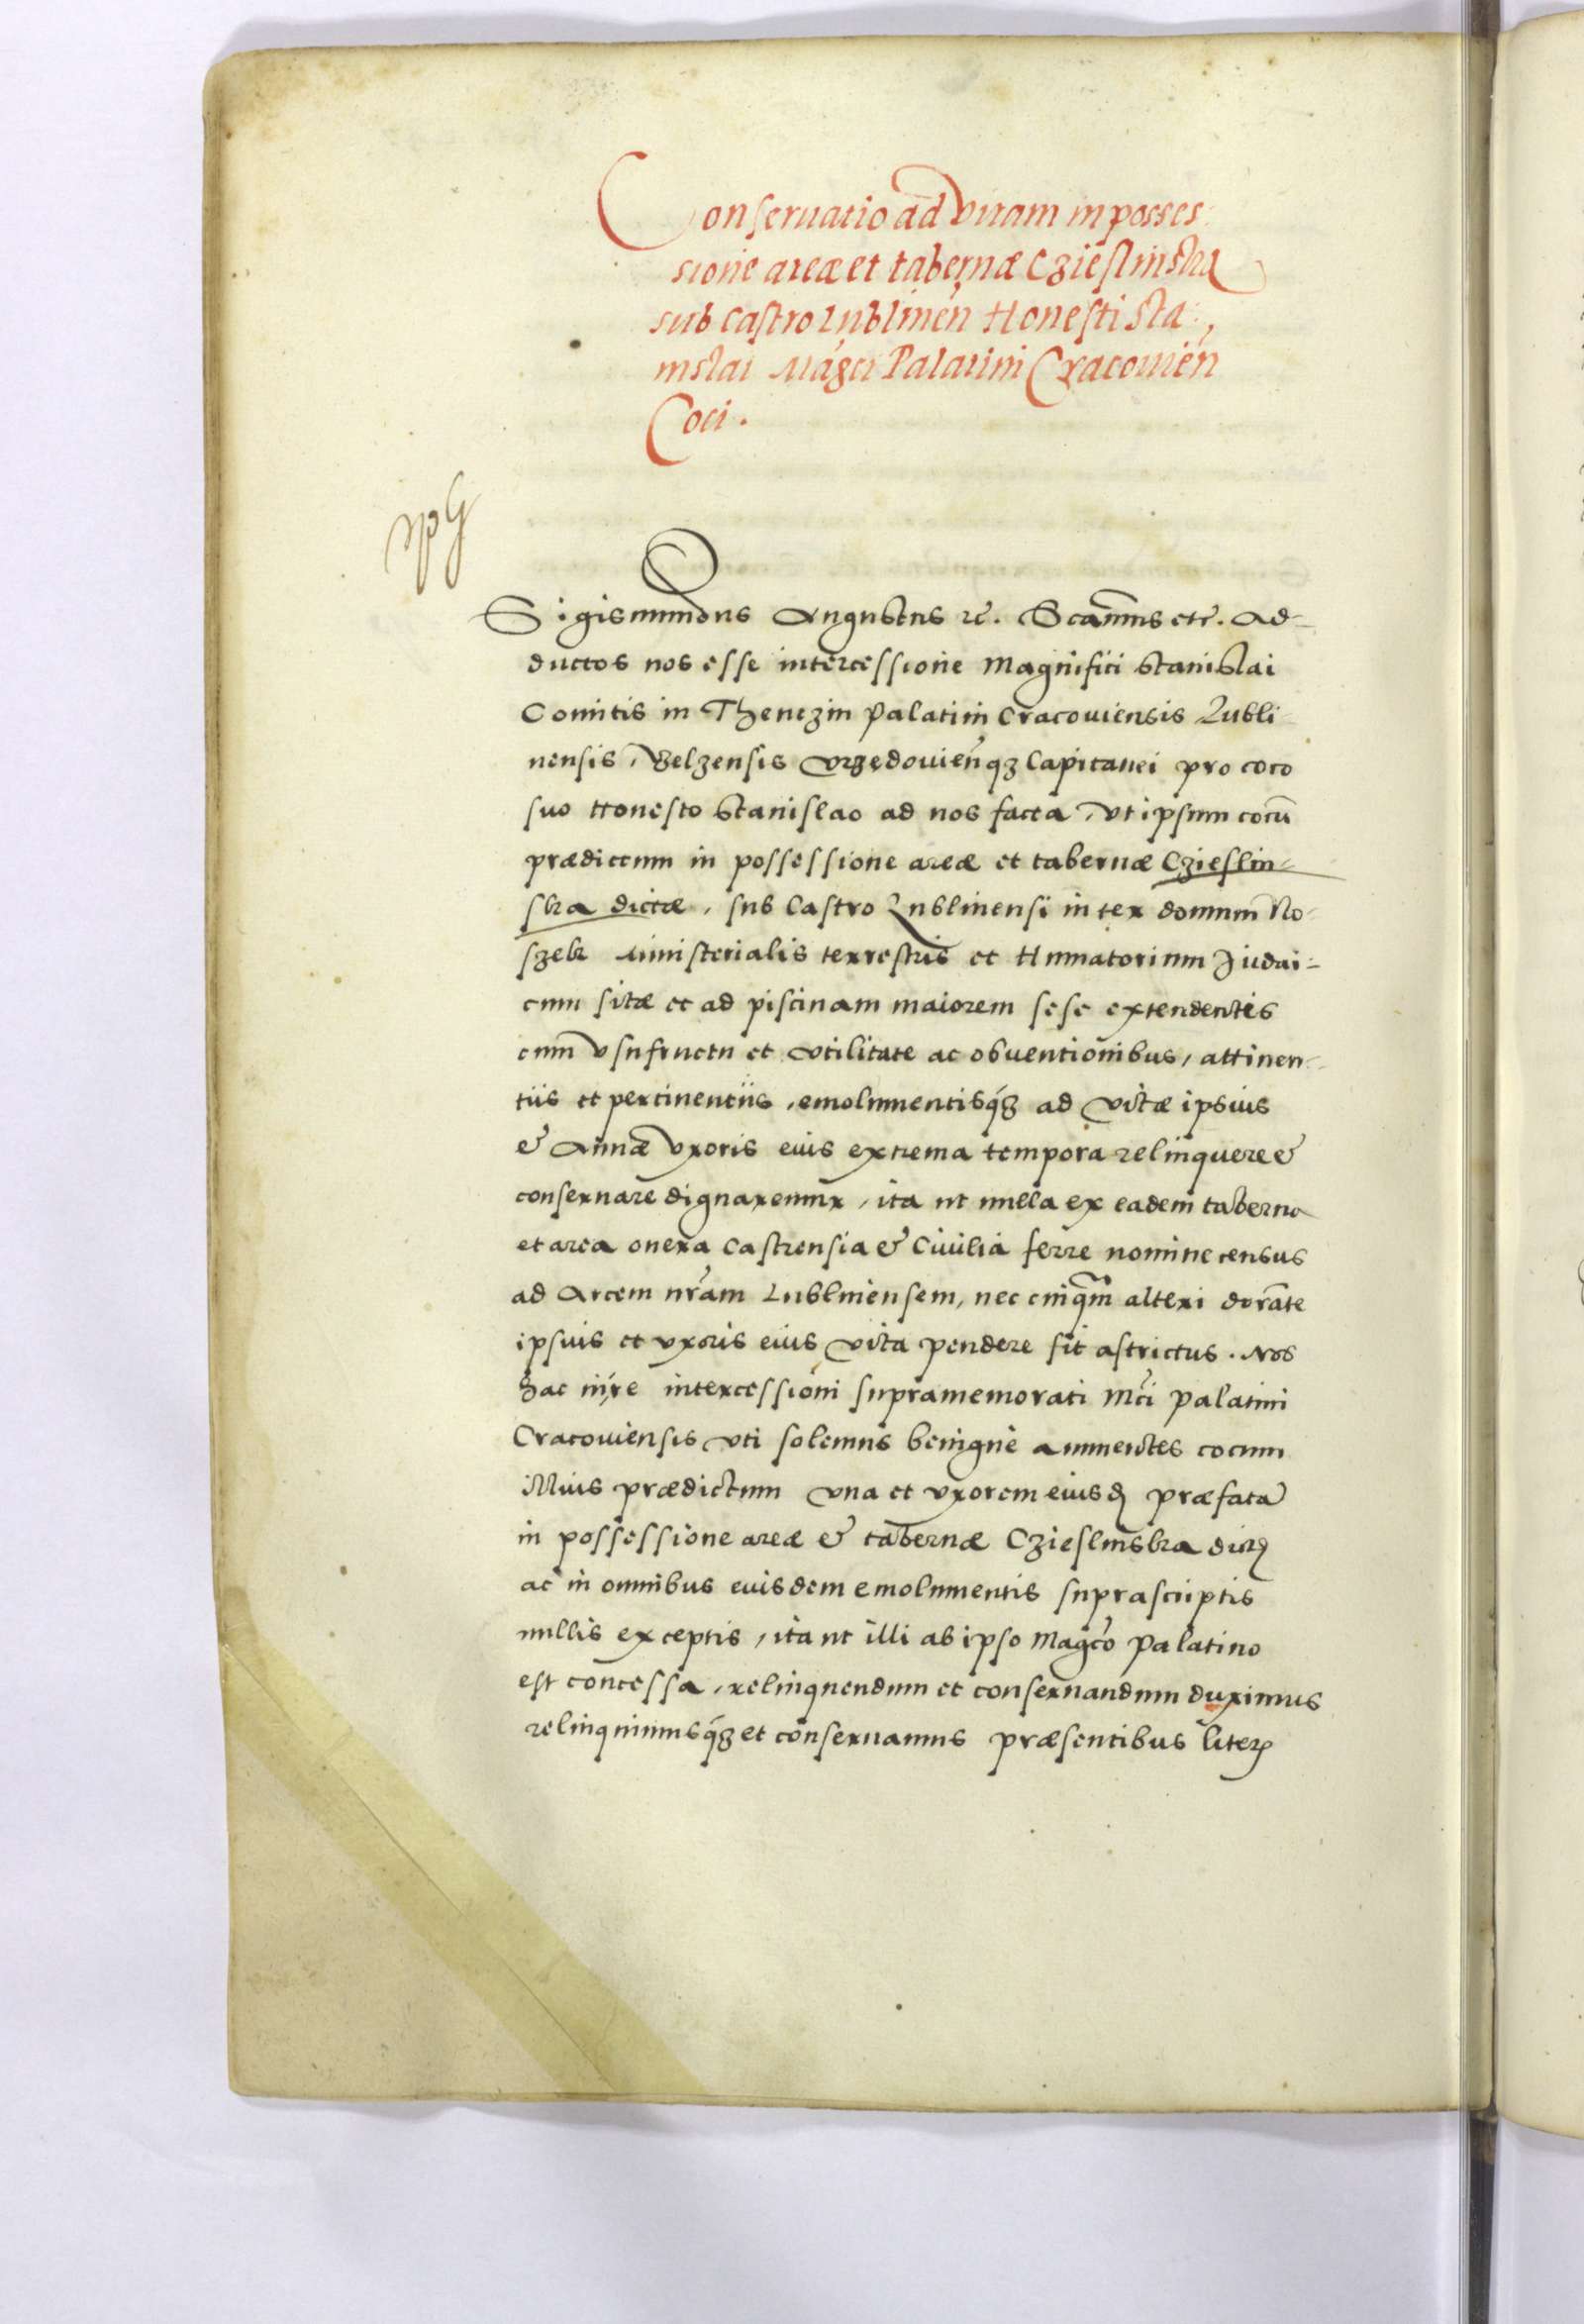 Conseruatio ad vitam in posses:
sione areæ et tabernæ Czieslinska
sub Castro Lublinen̄ Honesti Sta:
nislai Magci Palatini Cracouien̄
Coci.
Sigismundus Augustus rc. Scamus etc. Ad-
ductos nos esse intercessione Magnifici Stanislai
Comitis in Thenczin Palatini Cracouiensis Lubli
nensis, Belzensis Vrzędouien̄qz Capitanei pro coco
suo Honesto Stanislao ad nos facta, vt ipsum cocū
prædictum in possessione areæ et tabernæ Czieslin-
ska dictæ, sub Castro Lublinensi inter domum No-
szek Ministerialis terrestris et Humatorium Iudai-
cum sitæ et ad piscinam maiorem sese extendentis
cum vsufructu et vtilitate ac obuentionibus, attinen-
tiis et pertinentiis, emolumentisqz ad vitæ ipsius
& Annæ vxoris eius extrema tempora relinquere &
conseruare dignaremur, ita ut nulla ex eadem taberna
et area onera Castrensia & Ciuilia ferre nomine census
ad Arcem nr̄am Lublinensem, nec cuiqm̄ alteri dorāte
ipsius et vxoris eius vita pendere sit astrictus. Nos
hac in re intercessioni supramemorati Mci Palatini
Cracouiensis vti solemus benigne annuentes cocum
illius prædictum vna et vxorem eiusd præfatā
in possessione areæ & tabernæ Czieslinska dict
ac in omnibus euisdem emolumentis suprascriptis
nullis exceptis, ita ut illi ab ipso Magco Palatino
est concessa, relinquendum et conseruandum duximus
relinquimusqz et conseruamus præsentibus liter